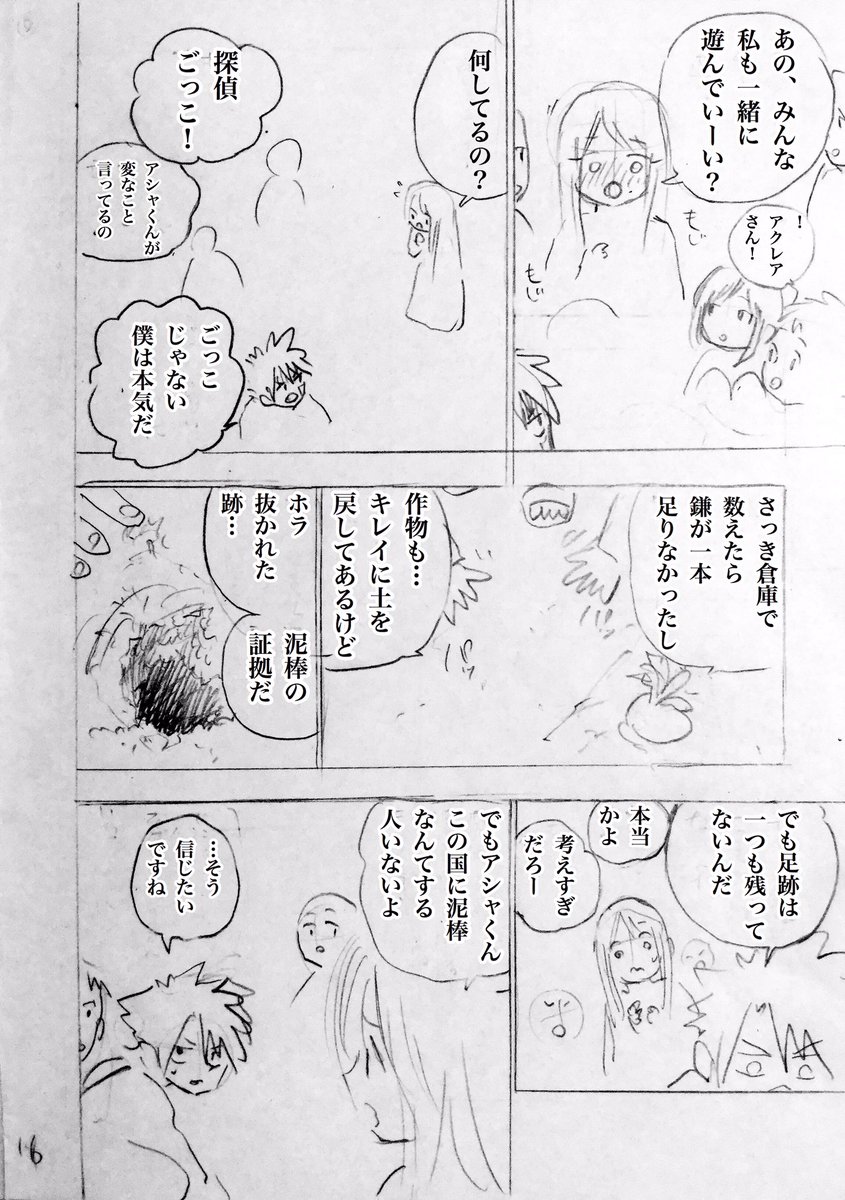 あの、みんな
私も一緒に
遊んでいーい？
もじ
もじ
！
アクレア
さん！
何してるの？
探偵
ごっこ！
アシャくんが
変なこと
言ってるの
ごっこ
じゃない
僕は本気だ
さっき倉庫で
数えたら
鎌が一本
足りなかったし
作物も…
キレイに土を
戻してあるけど
ホラ
抜かれた
跡…
泥棒の
証拠だ
でも足跡は
一つも残って
ないんだ
本当
かよ
考えすぎ
だろー
でもアシャくん
この国に泥棒
なんてする
人いないよ
…そう
信じたい
ですね
16